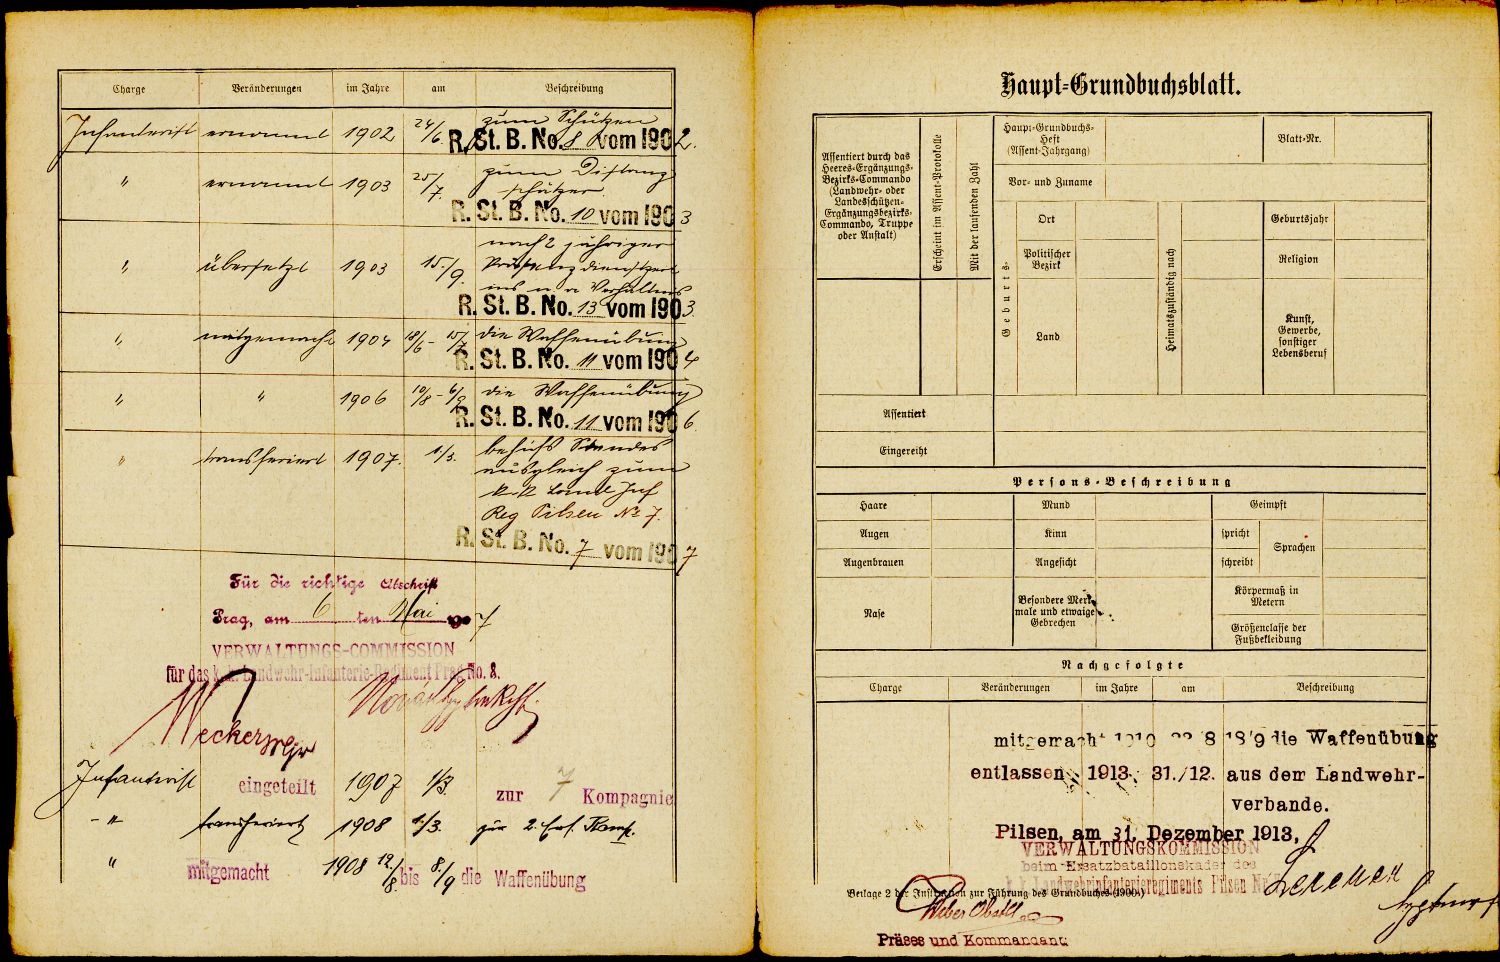 Charge Veränderungen im Jahre am Beschreibung
Infanterist ernannt 1902 24/6. zum Schützen
R. St. B. No. 8 vom 1902.
" ernannt 1903 25/7. zum Distanz
schützer
R. St. B. No. 10 vom 1903
nach 2 jähriger
" übersetzt 1903 15./9. Präsenzdienstzeit
ins n. a. Verhältnis
R. St. B. No. 13 vom 1903.
" mitgemacht 1904 18/6 - 15/7 die Waffenübung
R. St. B. No. 11 vom 1904
" " 1906 10/8 - 6/9 die Waffenübung
R. St. B. No. 11 vom 1906
" transferiert 1907. 1/3. behufs Standes
ausgleich zum
k. k. Landw Inf
Reg Pilsen No 7.
R. St. B. No. 7 vom 1907
Für die richtige Abschrift
Prag, am 6 ten Mai 1907
VERWALTUNGS-COMMISSION
für das k. k. Landwehr-Infanterie-Regiment Prag No. 8.
Infanterist eingeteilt 1907 1/3 zur 7 Kompagnie
-"- transferiert 1908 1/3. zur 2. Komp.
" mitgemacht 1908 12/8. bis 8/9 die Waffenübung
Haupt-Grundbuchsblatt.
Assentiert durch das
Heeres-Ergänzungs-
Bezirks-Commando
(Landwehr- oder
Landesschützen-
Ergänzungsbezirks-
Commando, Truppe
oder Anstalt)
Erscheint im Assent-Protokolle
Mit der laufenden Zahl
Haupt-Grundbuchs-
Heft
(Assent-Jahrgang)
Blatt-Nr.
Vor- und Zuname
Geburts-
Ort
Politischer
Bezirk
Land
Heimatszuständig nach
Geburtsjahr
Religion
Kunst,
Gewerbe,
sonstiger
Lebensberuf
Assentiert
Eingereiht
Persons-Beschreibung
Haare Mund Geimpft
Augen Kinn spricht
Sprachen
Augenbrauen Angesicht schreibt
Nase
Besondere Merk-
male und etwaige
Gebrechen
Körpermaß in
Metern
Größenclasse der
Fußbekleidung
Nachgefolgte
Charge Veränderungen im Jahre am Beschreibung
mitgemacht 1910 22/8 18/9 die Waffenübung
entlassen 1913. 31./12. aus dem Landwehr-
verbande.
Pilsen, am 31. Dezember 1913,
VERWALTUNGSKOMMISSION
beim Ersatzbataillonskader des
k. k. Landwehrinfanterieregiments Pilsen Nr. 7
Beilage 2 der Instruction zur Führung des Grundbuches (1900.)
Präses und Kommandant